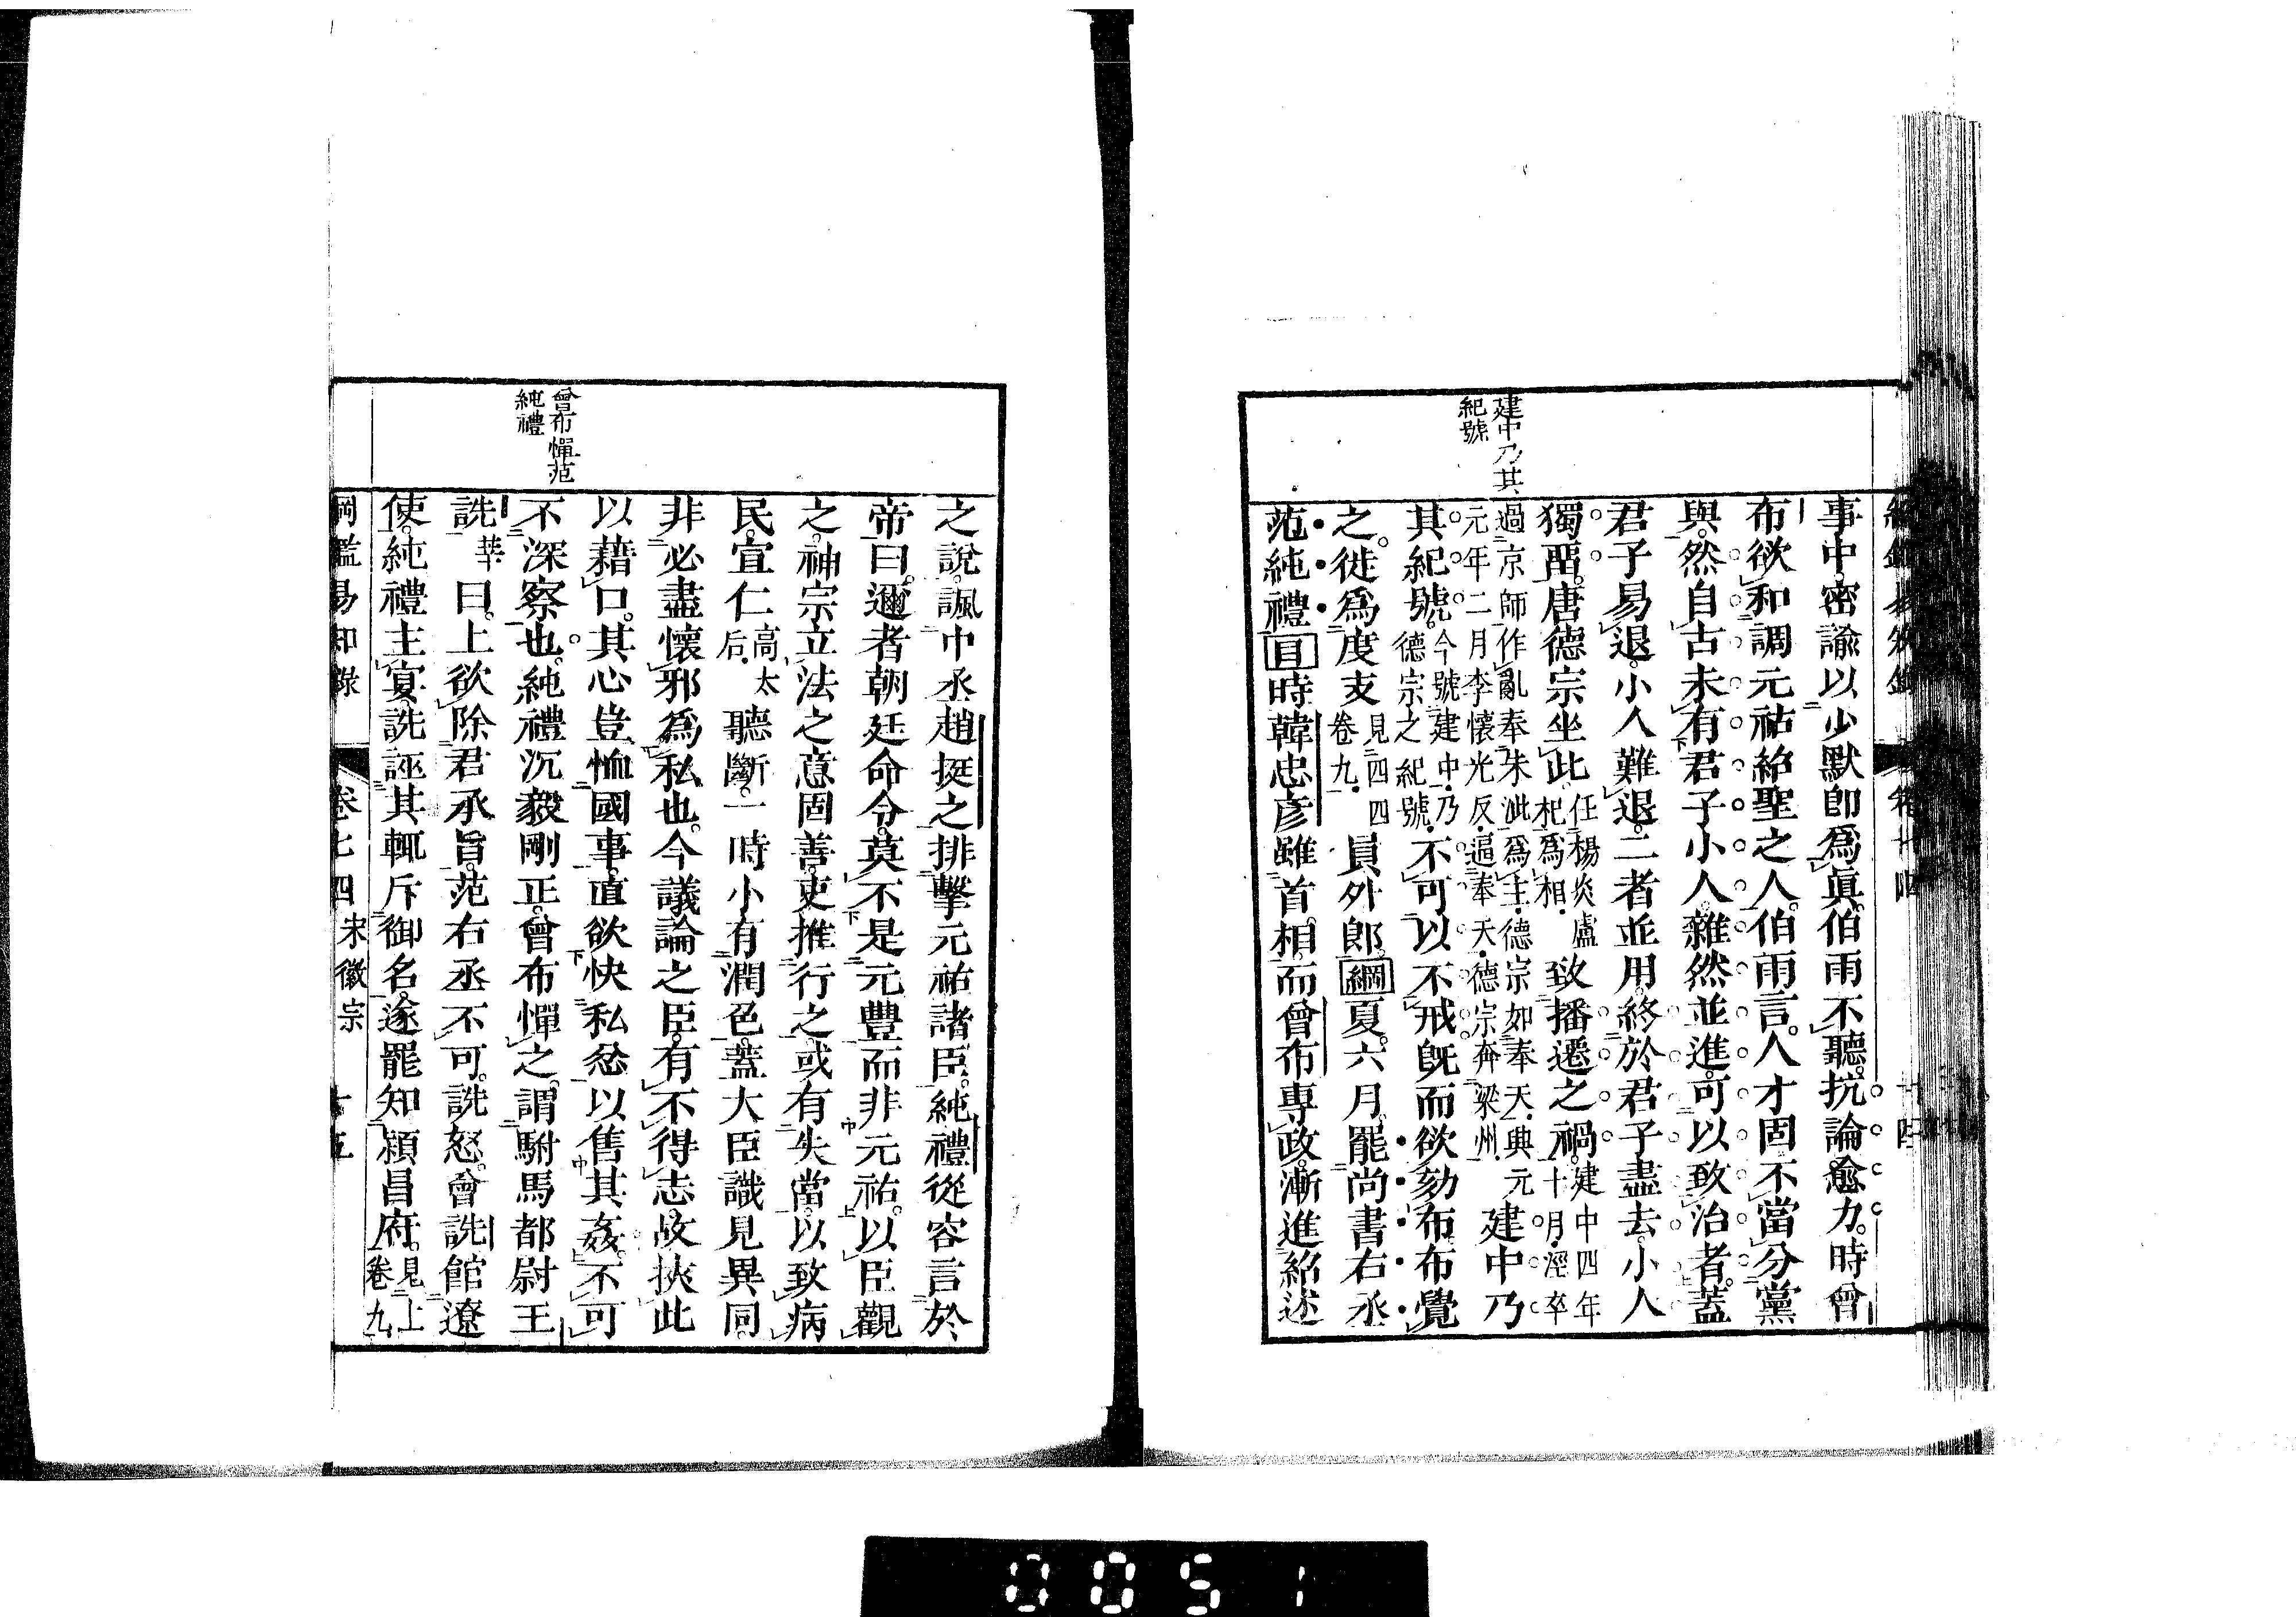 建中乃其
紀號
事中。密諭以少默卽爲眞。伯雨不聽。抗論愈力。時曾
布欲和調元祐紹聖之人。伯雨言。人才固不當分黨
與。然自古未有君子小人。雜然並進。可以致治者。蓋
君子易退。小人難退。二者並用。終於君子盡去。小人
獨畱。唐德宗坐此任楊炎盧杞爲相。致播遷之禍。建中四年十月。涇卒
過京師作亂奉朱泚爲主。德宗如奉天。興元元年二月李懷光反。逼奉天。德宗奔梁州。建中乃
其紀號。今號建中。乃德宗之紀號。不可以不戒。旣而欲劾布。布覺
之。徙爲度支見四四卷九。員外郎。綱夏。六月。罷尚書右丞
范純禮目時韓忠彦雖首相。而曾布專政。漸進紹述
曾布憚范
純禮
之說。諷中丞趙挺之排擊元祐諸臣。純禮從容言於
帝曰。邇者朝廷命令。莫不是元豐而非元祐。以臣觀
之。神宗立法之意固善。吏推行之。或有失當。以致病
民。宣仁高太后。聽斷。一時小有潤色。蓋大臣識見異同。
非必盡懷邪爲私也。今議論之臣。有不得志。故挾此
以藉口。其心豈恤國事。直欲快私忿以售其姦。不可
不深察也。純禮沉毅剛正。曾布憚之。謂駙馬都尉王
詵莘曰。上欲除君承旨。范右丞不可。詵怒。會詵館遼
使。純禮主宴。詵誣其輒斥御名。遂罷知潁昌府。見上卷九
綱鑑易知錄 卷七四 宋徽宗 十五